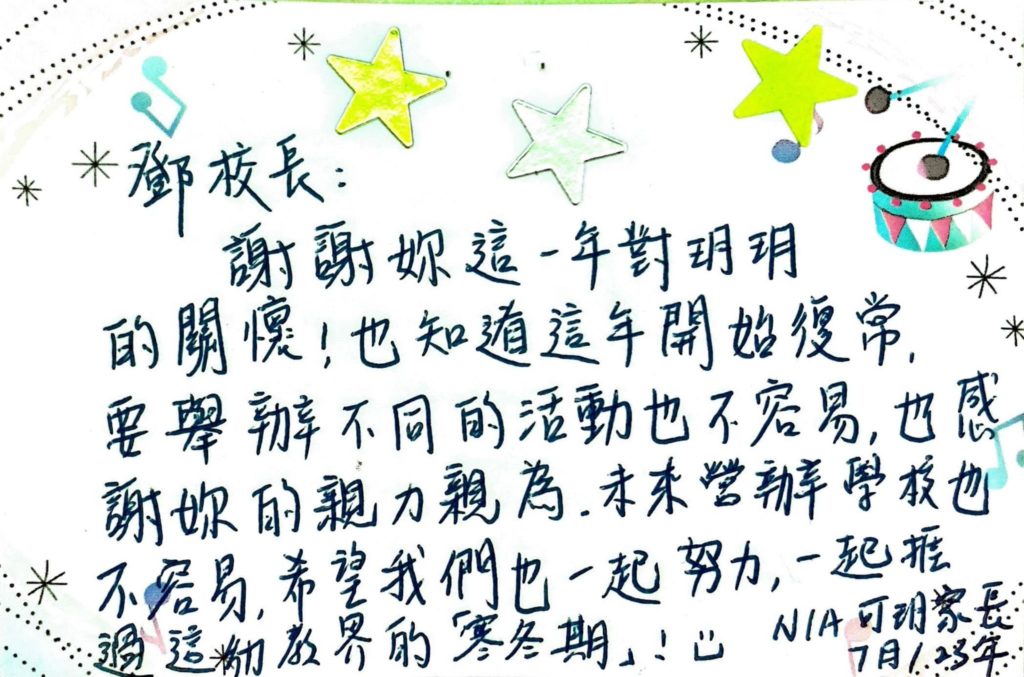 鄧校長：
謝謝妳這一年對玥玥
的關懷！也知道這年開始復常，
要舉辦不同的活動也不容易，也感
謝妳的親力親為．未來營辦學校也
不容易，希望我們也一起努力，一起捱
過這幼教界的「寒冬期」！
N1A 可玥家長
7月1，23年